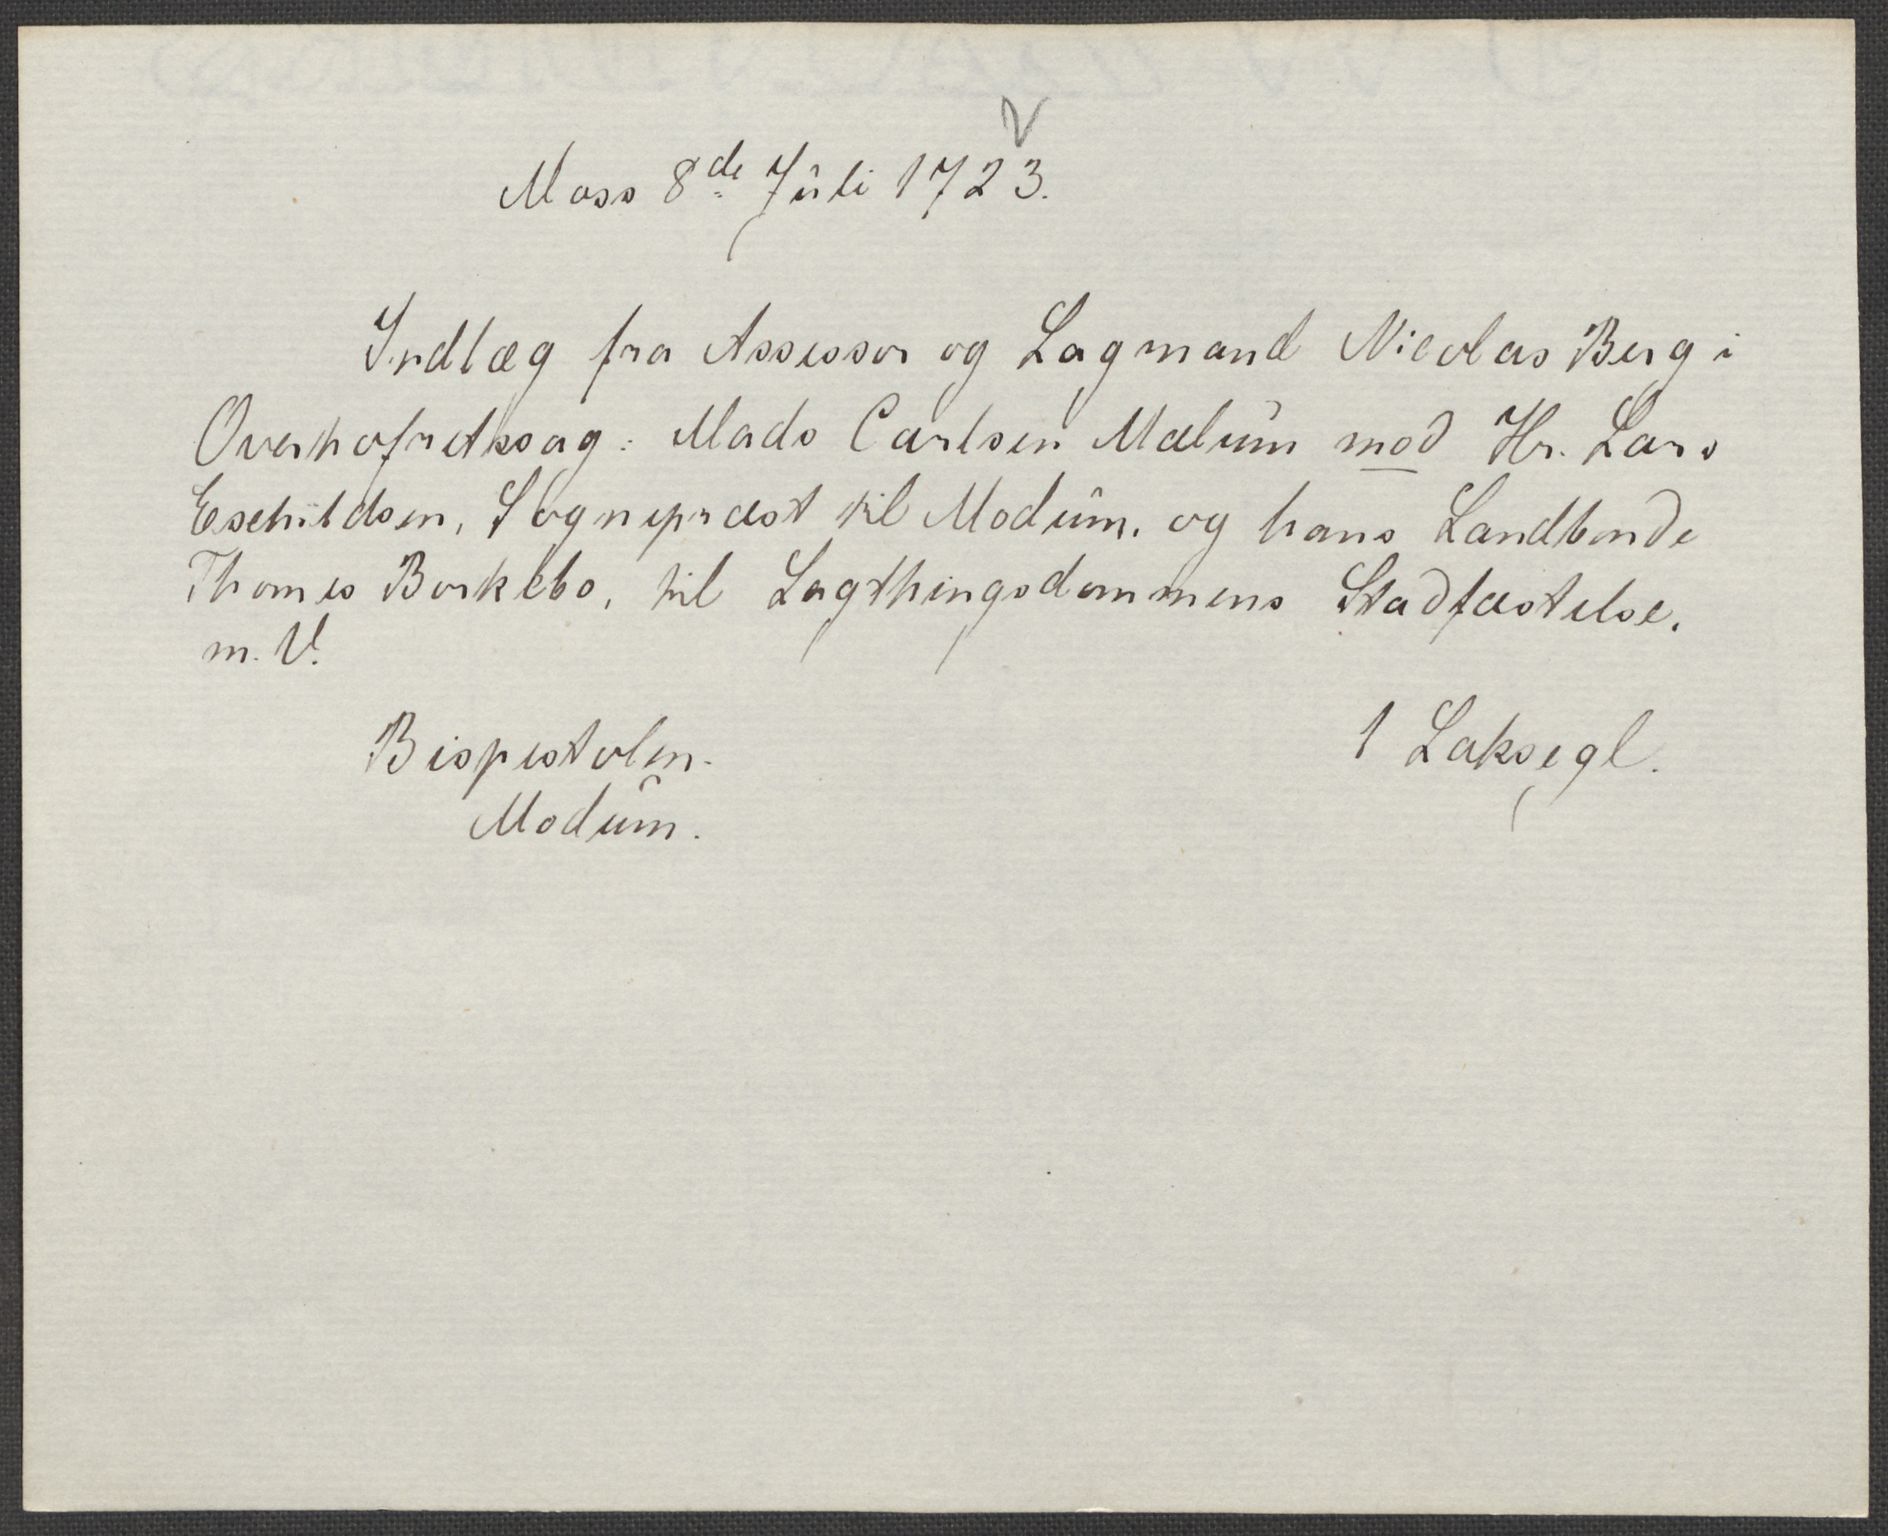 Moss 8de Jûli 1723.
Indlæg fra Assessor og Lagmand Nicolas Berg i
Overhofretssag: Mads Carlsen Mælûm mod Hr. Lars
Eschildsen, Sognepræst til Modûm, og hans Landbonde
Thomes Borkebo, til Lagthingsdommens Stadfæstelse.
m. V.
Bispestolen. 1 Laksegl.
Modûm.